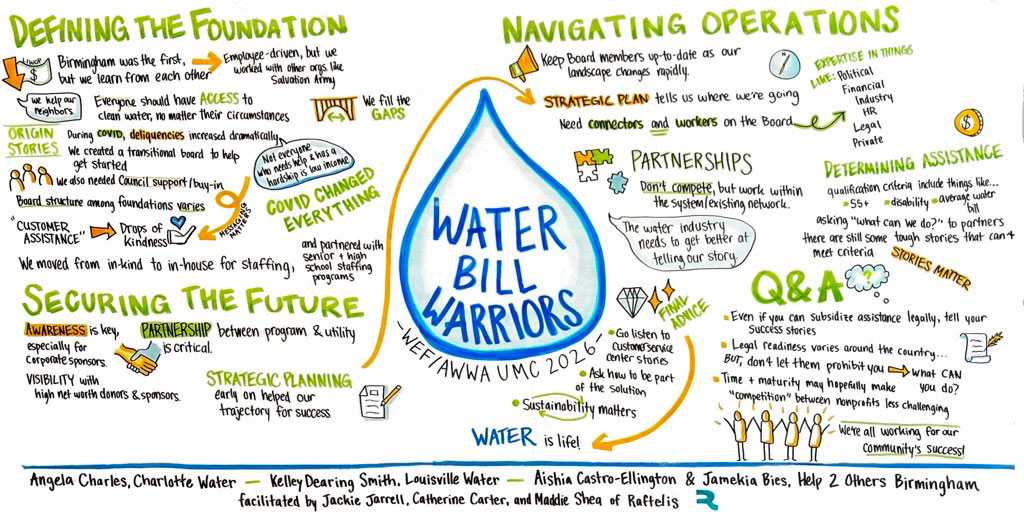 DEFINING THE FOUNDATION
Birmingham was the first,
but we learn from each other
Employee-driven, but we
worked with other orgs like
Salvation Army
We help our
neighbors.
Everyone should have ACCESS to
clean water, no matter their circumstances
We fill the
GAPS
ORIGIN
STORIES
During COVID, deliquencies increased dramatically
We created a transitional board to help
get started
We also needed Council support/buy-in
Board structure among foundations varies
Not everyone
who needs help & has a
hardship is low income
COVID CHANGED
EVERYTHING
MESSAGING
MATTERS
"CUSTOMER
ASSISTANCE"
Drops of
kindness
We moved from in-kind to in-house for staffing,
and partnered with
senior + high
school staffing
programs
SECURING THE FUTURE
AWARENESS is key,
especially for
corporate sponsors.
PARTNERSHIP between program & utility
is critical.
VISIBILITY with
high net worth donors & sponsors.
STRATEGIC PLANNING
early on helped our
trajectory for success
WATER
BILL
WARRIORS
-WEF/AWWA UMC 2026-
NAVIGATING OPERATIONS
Keep Board members up-to-date as our
landscape changes rapidly.
STRATEGIC PLAN tells us where we're going
Need connectors and workers on the Board
EXPERTISE IN THINGS
LIKE: Political
Financial
Industry
HR
Legal
Private
PARTNERSHIPS
Don't compete, but work within
the system/existing network.
The water industry
needs to get better at
telling our story.
DETERMINING ASSISTANCE
qualification criteria include things like...
• 55+ • disability • average water
bill
asking "what can we do?" to partners
there are still some tough stories that can't
meet criteria
STORIES MATTER
FINAL
ADVICE
• Go listen to
customer service
center stories
• Ask how to be part
of the solution
• Sustainability matters
WATER is life!
Q&A
?
• Even if you can subsidize assistance legally, tell your
success stories
• Legal readiness varies around the country...
BUT, don't let them prohibit you
What CAN
you do?
• Time + maturity may hopefully make
"competition" between nonprofits less challenging
We're all working for our
community's success!
Angela Charles, Charlotte Water — Kelley Dearing Smith, Louisville Water — Aishia Castro-Ellington & Jamekia Bies, Help 2 Others Birmingham
facilitated by Jackie Jarrell, Catherine Carter, and Maddie Shea of Raftelis